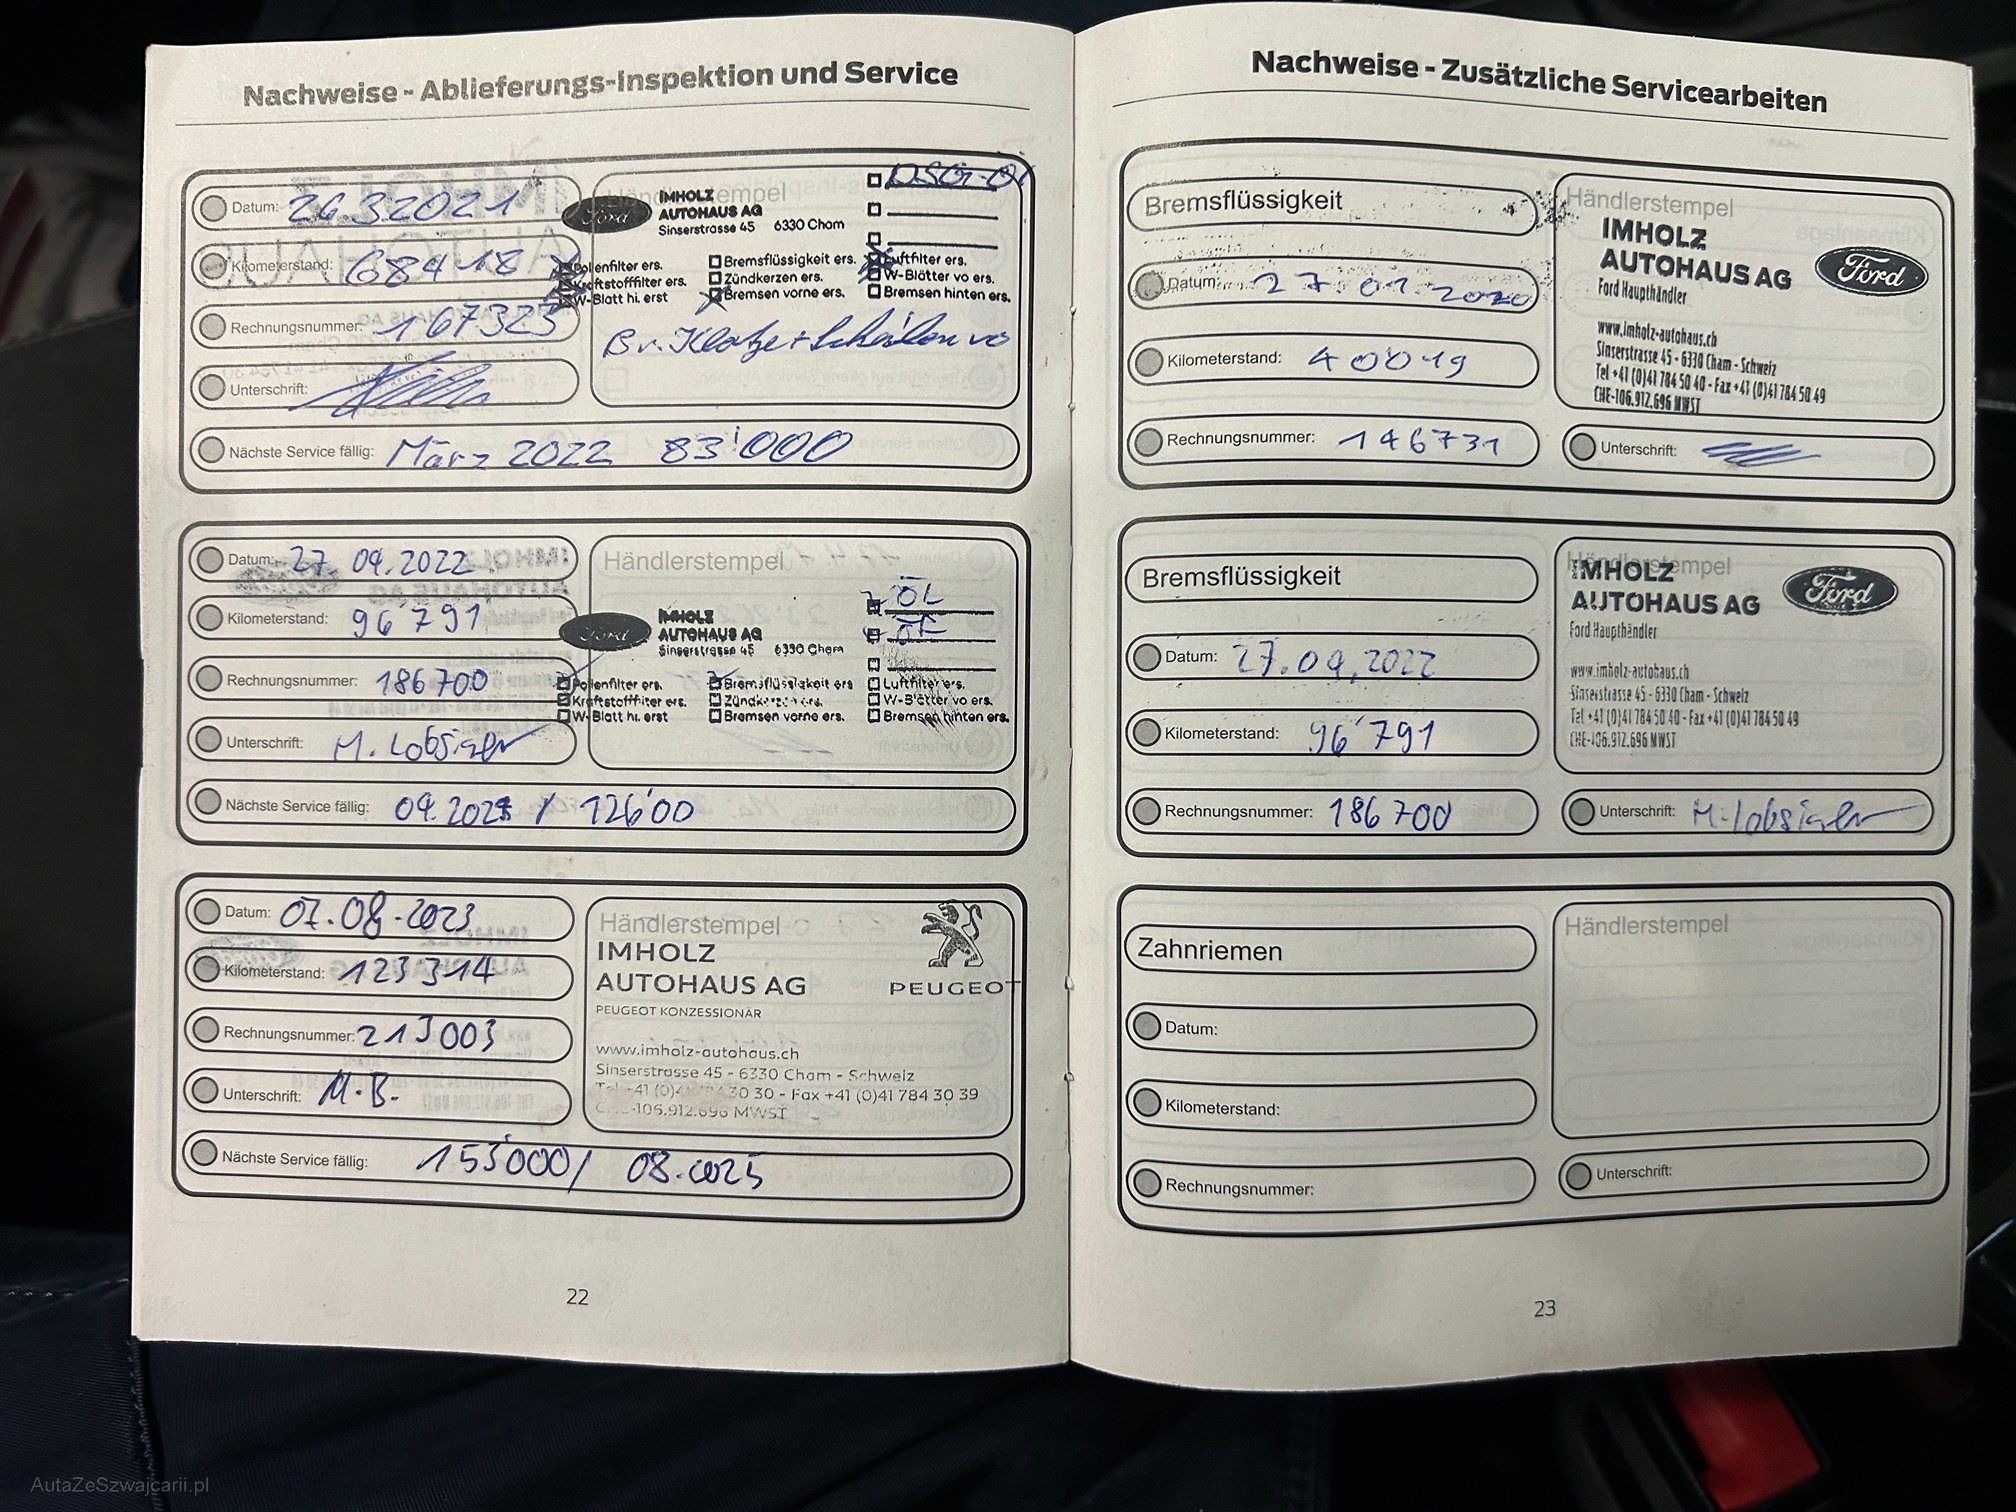 Nachweise - Ablieferungs-Inspektion und Service
Datum: 26.3.2021
Kilometerstand: 68418
Rechnungsnummer: 167325
Unterschrift:
Nächste Service fällig: März 2022 83'000
Händlerstempel
Ford
IMHOLZ
AUTOHAUS AG
Sinserstrasse 45 6330 Cham
DSG-Öl
Pollenfilter ers. Bremsflüssigkeit ers. Luftfilter ers.
Kraftstofffilter ers. Zündkerzen ers. W-Blätter vo ers.
W-Blatt hi. erst Bremsen vorne ers. Bremsen hinten ers.
Br. Klötze + Scheiben vo
Datum: 27 04.2022
Kilometerstand: 96'791
Rechnungsnummer: 186700
Unterschrift: M. Lobsiger
Nächste Service fällig: 04. / 126'00
Händlerstempel
ÖL
ÖF
Ford
IMHOLZ
AUTOHAUS AG
Sinserstrasse 45 6330 Cham
Pollenfilter ers. Bremsflüssigkeit ers Luftfilter ers.
Kraftstofffilter ers. Zündkerzen ers. W-Blätter vo ers.
W-Blatt hi. erst Bremsen vorne ers. Bremsen hinten ers.
Datum: 07.08.2023
Kilometerstand: 123314
Rechnungsnummer: 213003
Unterschrift: M.B.
Nächste Service fällig: 153'000/ 08.2025
Händlerstempel
IMHOLZ
AUTOHAUS AG
PEUGEOT
PEUGEOT KONZESSIONÄR
www.imholz-autohaus.ch
Sinserstrasse 45 - 6330 Cham - Schweiz
30 30 - Fax +41 (0)41 784 30 39
CHE-106.912.696 MWST
22
Nachweise - Zusätzliche Servicearbeiten
Bremsflüssigkeit
Datum: 27.01.2020
Kilometerstand: 40'019
Rechnungsnummer: 146731
Händlerstempel
IMHOLZ
AUTOHAUS AG
Ford
Ford Haupthändler
www.imholz-autohaus.ch
Sinserstrasse 45 - 6330 Cham - Schweiz
Tel +41 (0)41 784 50 40 - Fax +41 (0)41 784 50 49
CHE-106.912.696 MWST
Unterschrift:
Bremsflüssigkeit
Datum: 27.04.2022
Kilometerstand: 96'791
Rechnungsnummer: 186700
Händlerstempel
IMHOLZ
AUTOHAUS AG
Ford
Ford Haupthändler
www.imholz-autohaus.ch
Sinserstrasse 45 - 6330 Cham - Schweiz
Tel +41 (0)41 784 50 40 - Fax +41 (0)41 784 50 49
CHE-106.912.696 MWST
Unterschrift: M. Lobsiger
Zahnriemen
Datum:
Kilometerstand:
Rechnungsnummer:
Händlerstempel
Unterschrift:
23
AutaZeSzwajcarii.pl